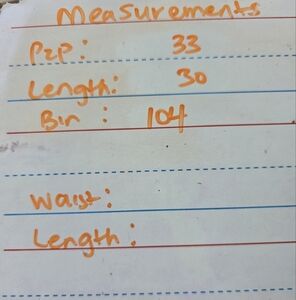 Measurements
P2P: 33
Length: 30
Bin: 104
Waist:
Length: